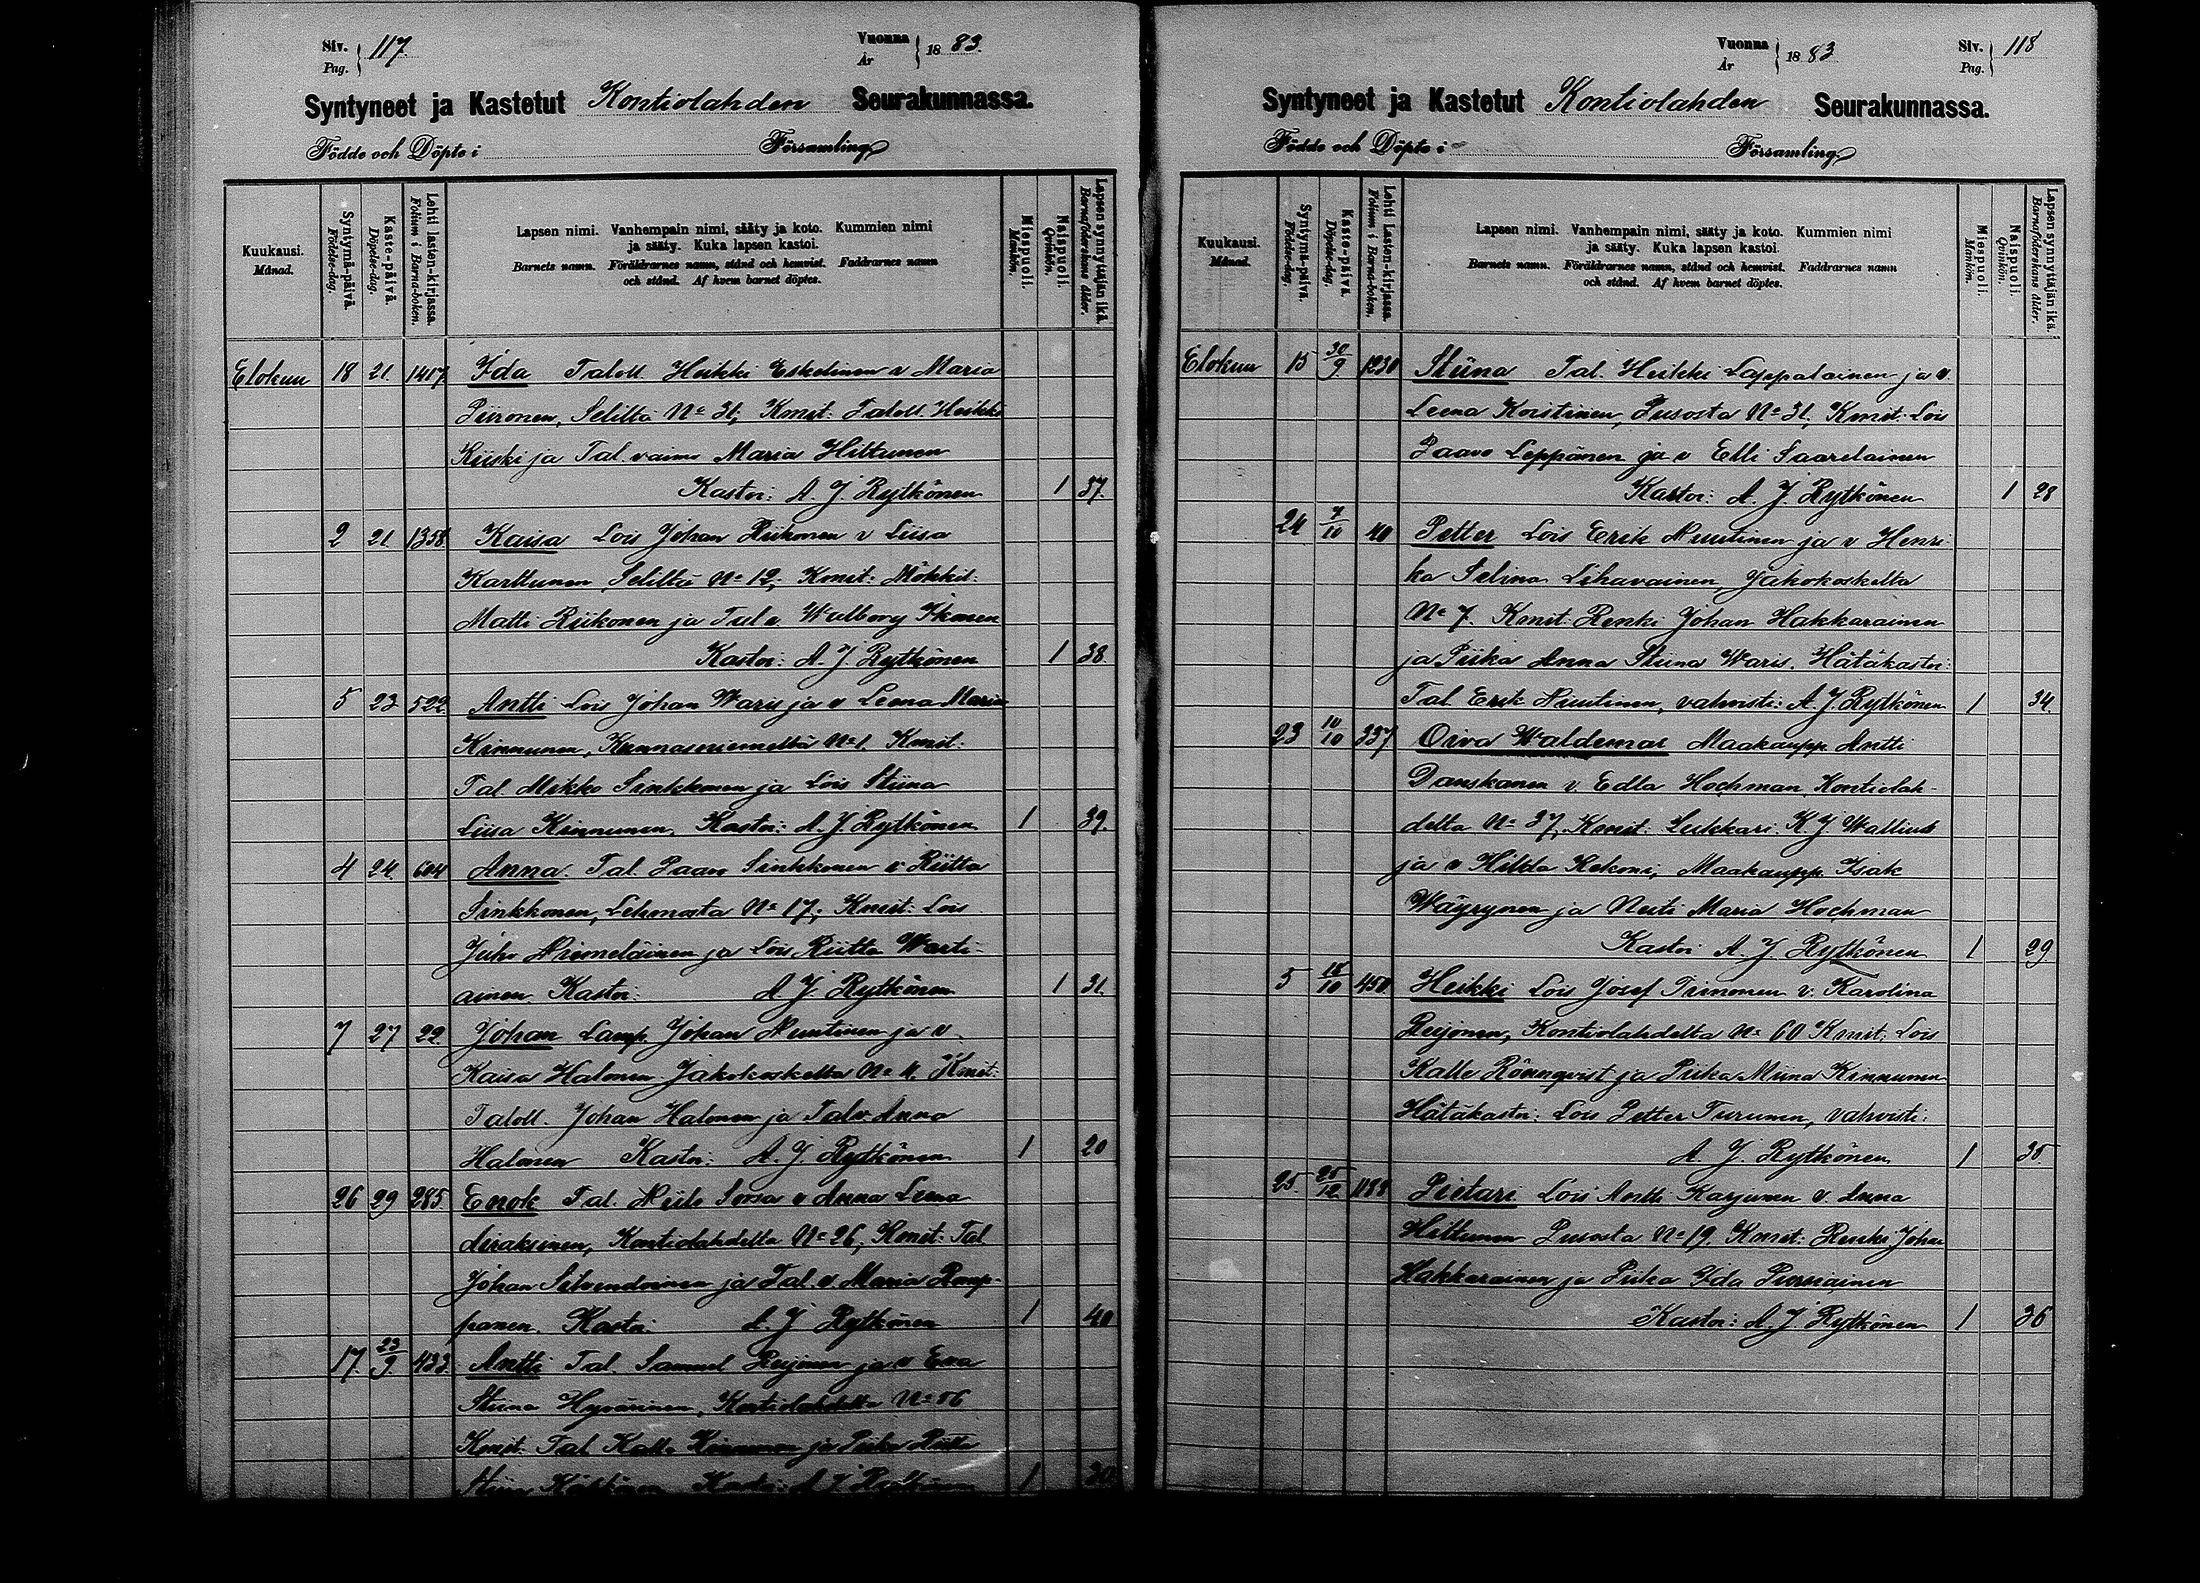 Siv. Pag. 117. Vuonna År 1883.
Syntyneet ja Kastetut Kontiolahden Seurakunnassa.
Födde och Döpte i Församling
Kuukausi. Månad.
Syntymä-päivä. Födelse-dag.
Kaste-päivä. Döpelse-dag.
Lehti lasten-kirjassa. Folium i Barna-boken.
Lapsen nimi. Vanhempain nimi, sääty ja koto. Kummien nimi
ja sääty. Kuka lapsen kastoi.
Barnets namn. Föräldrarnes namn, stånd och hemvist. Faddrarnes namn
och stånd. Af hvem barnet döptes.
Miespuoli. Mankön.
Naispuoli. Qvinkön.
Lapsen synnyttäjän ikä. Barnaföderskans ålder.
Elokuu 18 21. 1417. Ida Taloll. Heikki Eskelinen v Maria
Piironen, Seliltä No 31, Kmit: Taloll Heikki
Kiiski ja Tal. vaimo Maria Hiltunen
Kastoi: A. J. Rytkönen 1 37.
2 21. 1358 Kaisa Lois Johan Riikonen v Liisa
Karttunen, Seliltä No 12; Kmit: Mökkil.
Matti Riikonen ja Tal v Walborg Ikonen
Kastoi: A. J. Rytkönen 1 38.
5 23 522 Antti Lois Johan Waris ja v Leena Maria
Kinnunen, Kunnasniemeltä No 1. Kmit:
Tal. Mikko Sinkkonen ja Lois Stiina
Liisa Kinnunen. Kastoi: A. J. Rytkönen 1 39.
4 24. 604 Anna. Tal. Paavo Sinkkonen v Riitta
Sinkkonen, Lehmosta No 17; Kmit: Lois
Juho Niemeläinen ja Lois Riitta Warti-
ainen Kastoi: A J Rytkönen 1 31.
7 27 22. Johan Lamp. Johan Nuutinen ja v.
Kaisa Halonen Jakokoskelta No 4. Kmit:
Taloll. Johan Halonen ja Talv. Anna
Halonen Kastoi: A. J. Rytkönen 1 20
26 29 285 Enok Tal. Niilo Sorsa v Anna Leena
Airaksinen, Kontiolahdelta No 26, Kmit: Tal
Johan Silvendoinen ja Tal. v. Maria Romp-
panen. Kastoi: A. J Rytkönen 1 40
17. 23/9. 433. Antti Tal. Samuel Reijonen ja v Eva
Stiina Hyvärinen, Kontiolahdelta No 56
Kmit. Tal. Kalle Kinnunen ja Piika Riitta
Stiina Kastoi: A J Rytkönen 1 30
Vuonna År 1883 Siv. Pag. 118
Syntyneet ja Kastetut Kontiolahden Seurakunnassa.
Födde och Döpte i Församling
Kuukausi. Månad.
Syntymä-päivä. Födelse-dag.
Kaste-päivä. Döpelse-dag.
Lehti Lasten-kirjassa. Folium i Barna-boken.
Lapsen nimi. Vanhempain nimi, sääty ja koto. Kummien nimi
ja sääty. Kuka lapsen kastoi.
Barnets namn. Föräldrarnes namn, stånd och hemvist. Faddrarnes namn
och stånd. Af hvem barnet döptes.
Miespuoli. Mankön.
Naispuoli. Qvinkön.
Lapsen synnyttäjän ikä. Barnaföderskans ålder.
Elokuu 15 30/9 1230 Stiina Tal. Heikki Lappalainen ja v.
Leena Koistinen, Pusosta No 31; Kmit: Lois
Paavo Leppänen ja v Elli Saarelainen
Kastoi: A. J. Rytkönen 1 28
24 7/10 40 Petter Lois Erik Nuutinen ja v Henri-
ka Selina Lihavainen, Jakokoskelta
No 7. Kmit Renki Johan Hakkarainen
ja Piika Anna Stiina Waris. Hätäkastoi:
Tal Erik Nuutinen, vahvisti: A. J. Rytkönen 1 34.
23 10/10 357 Oiva Waldemar Maakaupp. Antti
Danskanen v. Edla Hochman Kontiolah-
delta No 37, Kmit: Leikkari K J Wallius
ja v Hilda Kekoni; Maakaupp. Isak
Wäyrynen ja Neiti Maria Hochman
Kastoi A. J. Rytkönen 1 29
5 18/10 450 Heikki Lois Josef Timonen v. Karolina
Reijonen, Kontiolahdelta No 60 Kmit. Lois
Kalle Rönnqvist ja Piika Miina Kinnunen
Hätäkastoi: Lois Petter Turunen, vahvisti:
A. J. Rytkönen 1 35.
25. 25/12 1188 Pietari Lois Antti Karjunen v. Anna
Hiltunen Pusosta No 19. Kmit: Renki Johan
Hakkarainen ja Piika Ida Pursiainen
Kastoi: A. J. Rytkönen 1 36